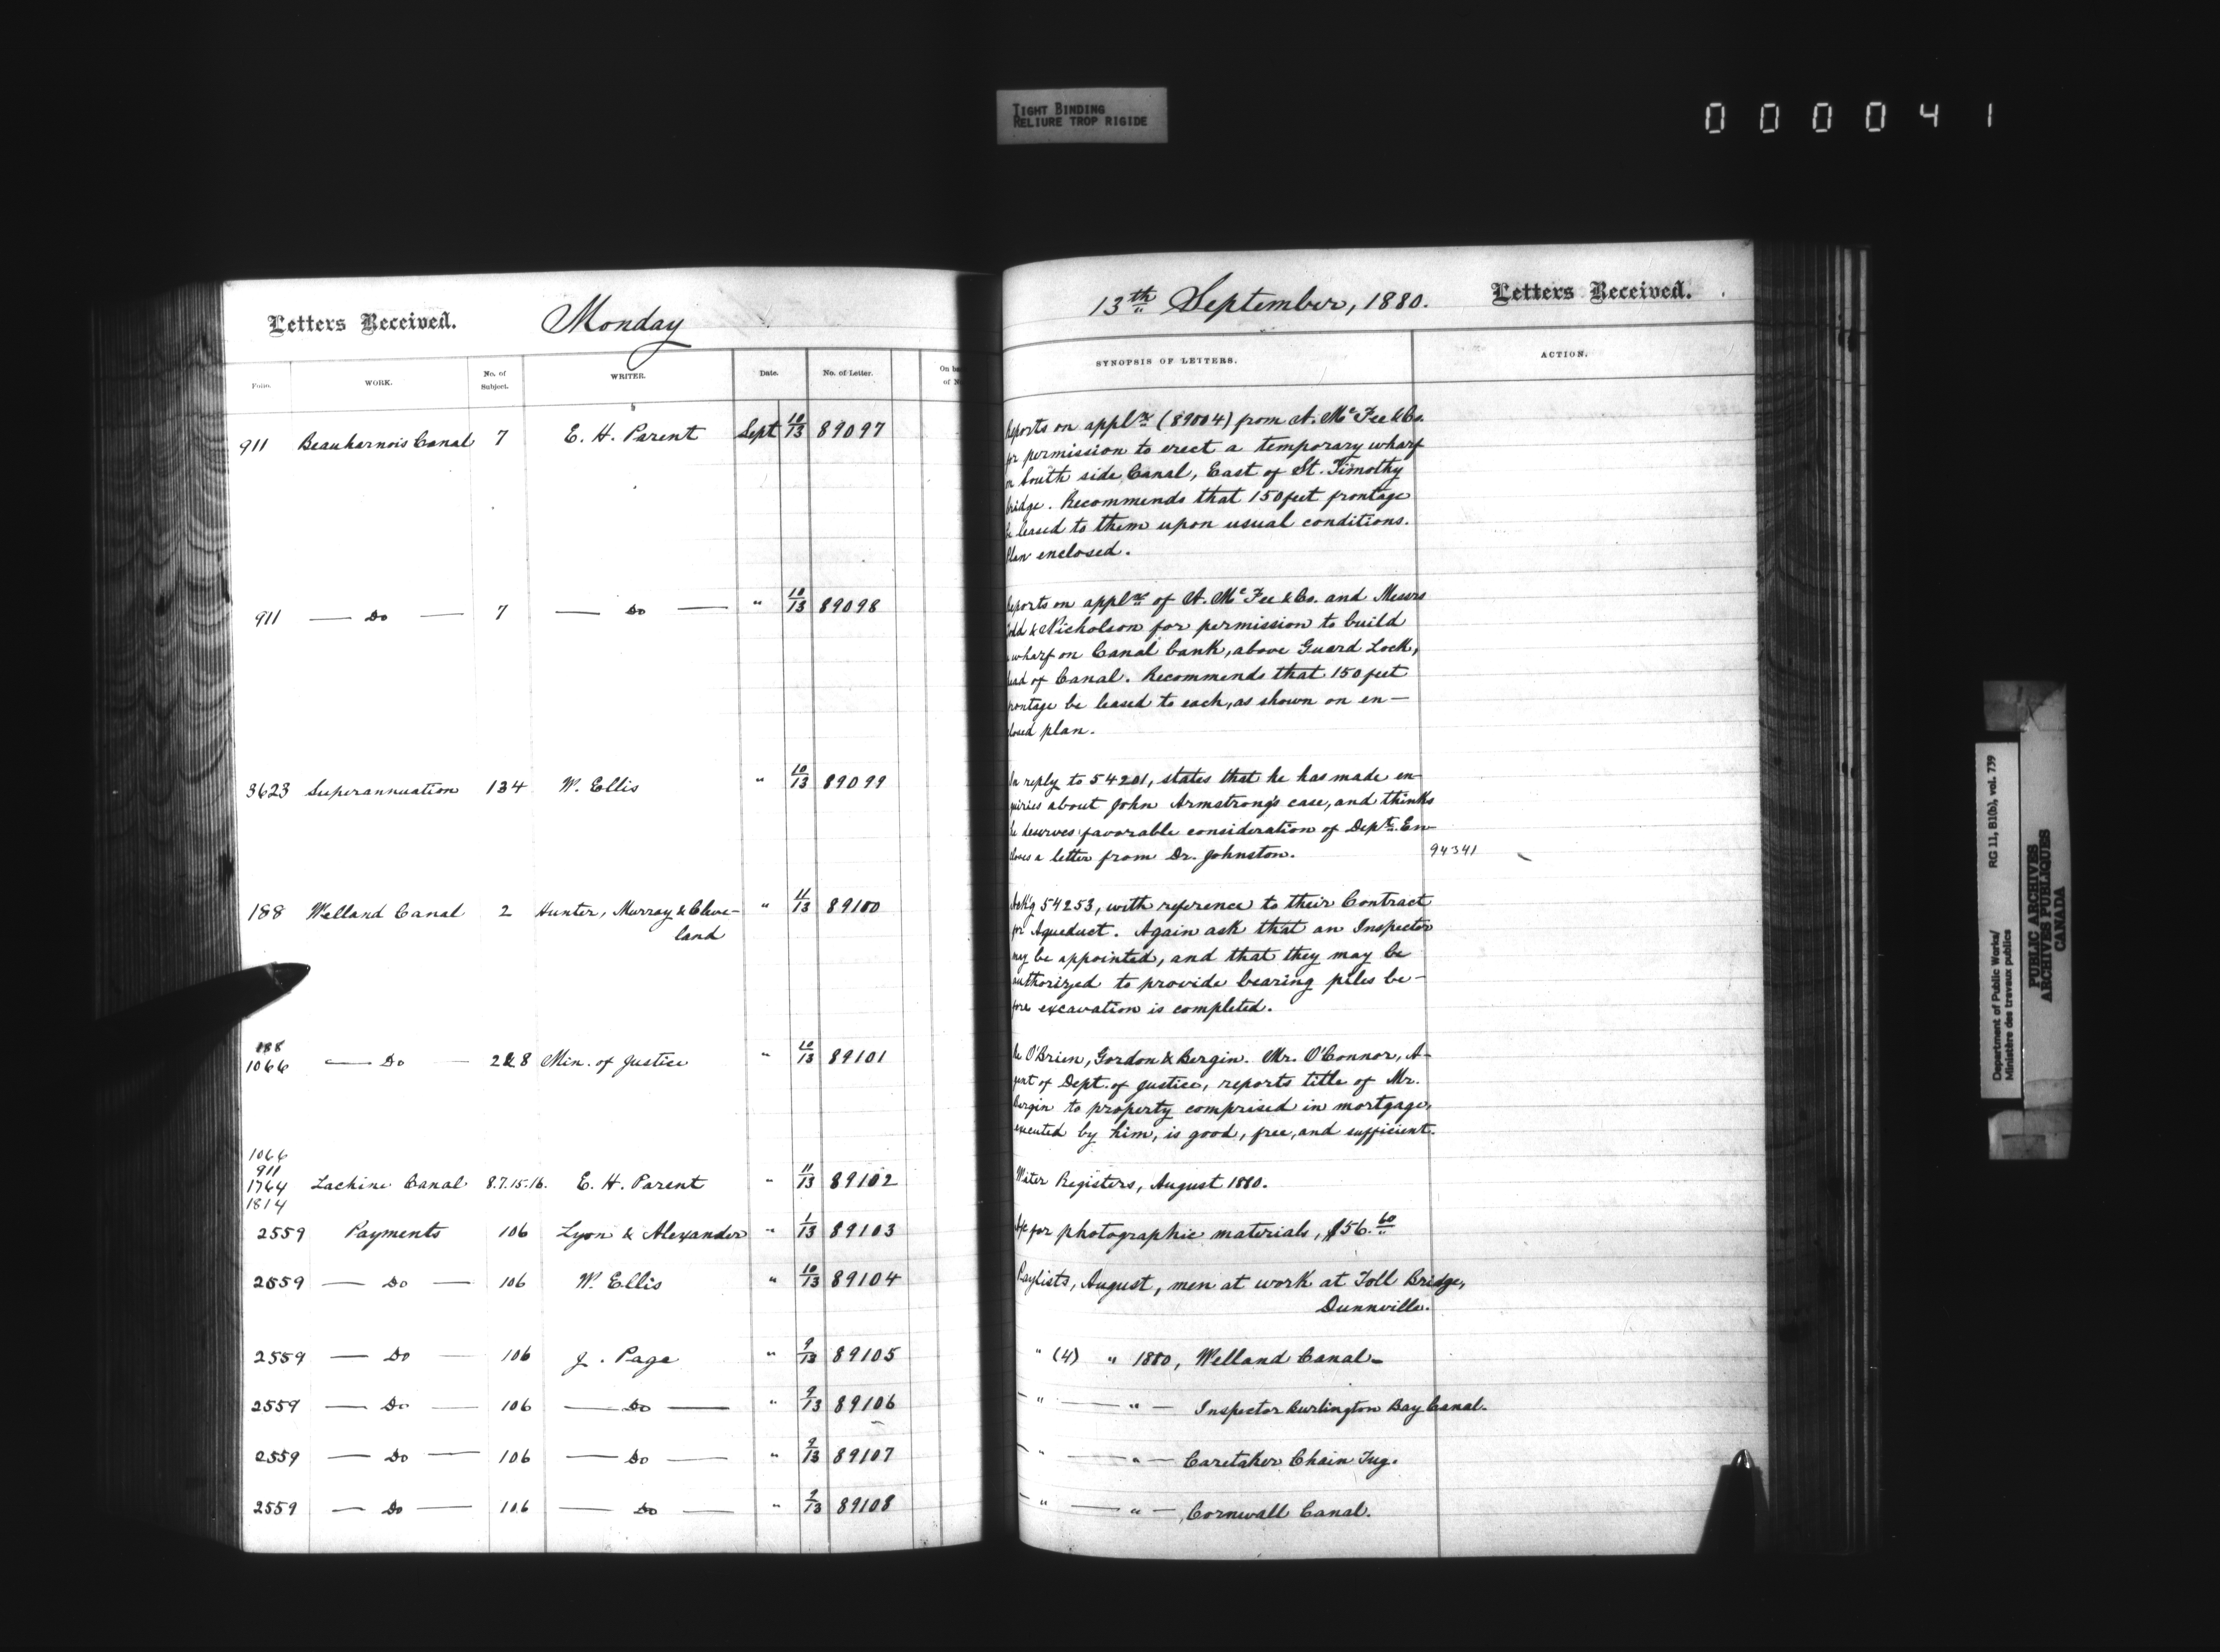 TIGHT BINDING
RELIURE TROP RIGIDE
0 0 0 0 4 1
Letters Received. Monday
Folio. WORK. No. of Subject. WRITER. Date. No. of Letter. On
of
911 Beauharnois Canal 7 E. H. Parent Sept 10/13 89097
911 — Do — 7 — Do — " 10/13 89098
3623 Superannuation 134 W. Ellis " 10/13 89099
188 Welland Canal 2 Hunter, Murray & Cleve-
land " 11/13 89100
188
1066 — Do — 2&8 Min. of Justice " 10/13 89101
1066
911
1764 Lachine Canal 8.7.15.16. E. H. Parent " 11/13 89102
1814
2559 Payments 106 Lyon & Alexander " 1/13 89103
2559 — Do — 106 W. Ellis " 10/13 89104
2559 — Do — 106 J. Page " 9/13 89105
2559 — Do — 106 — Do — " 9/13 89106
2559 — Do — 106 — Do — " 9/13 89107
2559 — Do — 106 — Do — " 9/13 89108
13th September, 1880. Letters Received.
SYNOPSIS OF LETTERS. ACTION.
Reports on appln (89004) from A. McFee & Co.
for permission to erect a temporary wharf
on South side Canal, East of St. Timothy
bridge. Recommends that 150 feet frontage
be leased to them upon usual conditions.
Plan enclosed.
Reports on applns of A. McFee & Co. and Messrs
Todd & Nicholson for permission to build
a wharf on Canal bank, above Guard Lock,
head of Canal. Recommends that 150 feet
frontage be leased to each, as shown on en-
closed plan.
In reply to 54201, states that he has made en-
quiries about John Armstrong's case, and thinks
he deserves favorable consideration of Dept. En-
closes a letter from Dr. Johnston. 94341
Ackg 54253, with reference to their Contract
for Aqueduct. Again ask that an Inspector
may be appointed, and that they may be
authorized to provide bearing piles be-
fore excavation is completed.
Re O'Brien, Gordon & Bergin. Mr. O'Connor, A-
gent of Dept. of Justice, reports title of Mr.
Bergin to property comprised in mortgage,
executed by him, is good, free, and sufficient.
Water Registers, August 1880.
A/c for photographic materials, $56.60
Paylists, August, men at work at Toll Bridge,
Dunnville.
" (4) " 1880, Welland Canal —
— " — " — Inspector Burlington Bay Canal.
— " — " — Caretaker Chain Tug.
— " — " — Cornwall Canal.
Department of Public Works/ RG 11, B1(b), vol. 739
Ministère des travaux publics
PUBLIC ARCHIVES
ARCHIVES PUBLIQUES
CANADA